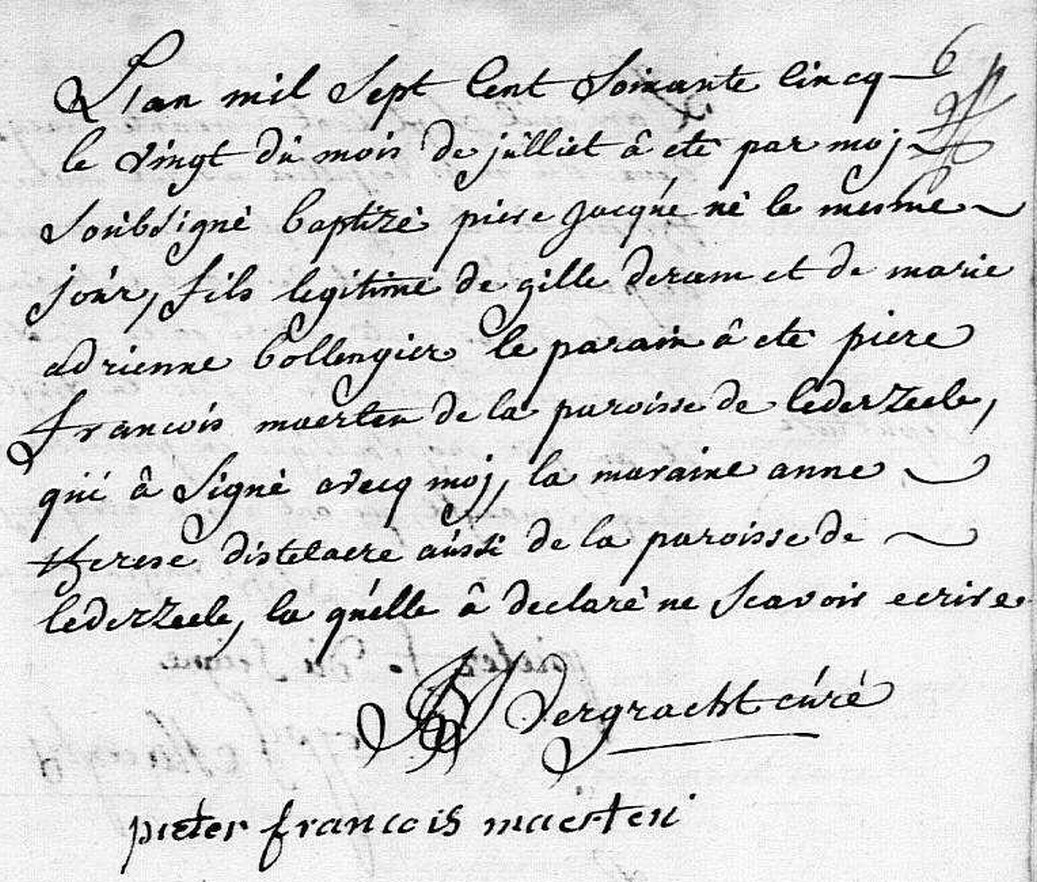 L'an mil sept cent soixante cincq 6
le vingt du mois de julliet â ete par moj
soubsigné baptizé piere jacque né le mesme
jour, fils legitime de gille deram et de marie
adrienne bollengier le parain â ete piere
francois maerten de la paroisse de lederzeele,
qui â signé avecq moj, la maraine anne
therese distelaere aussi de la paroisse de
lederzeele, la quelle â declaré ne scavoir ecrire.
Vergracht curé
pieter francois maerten